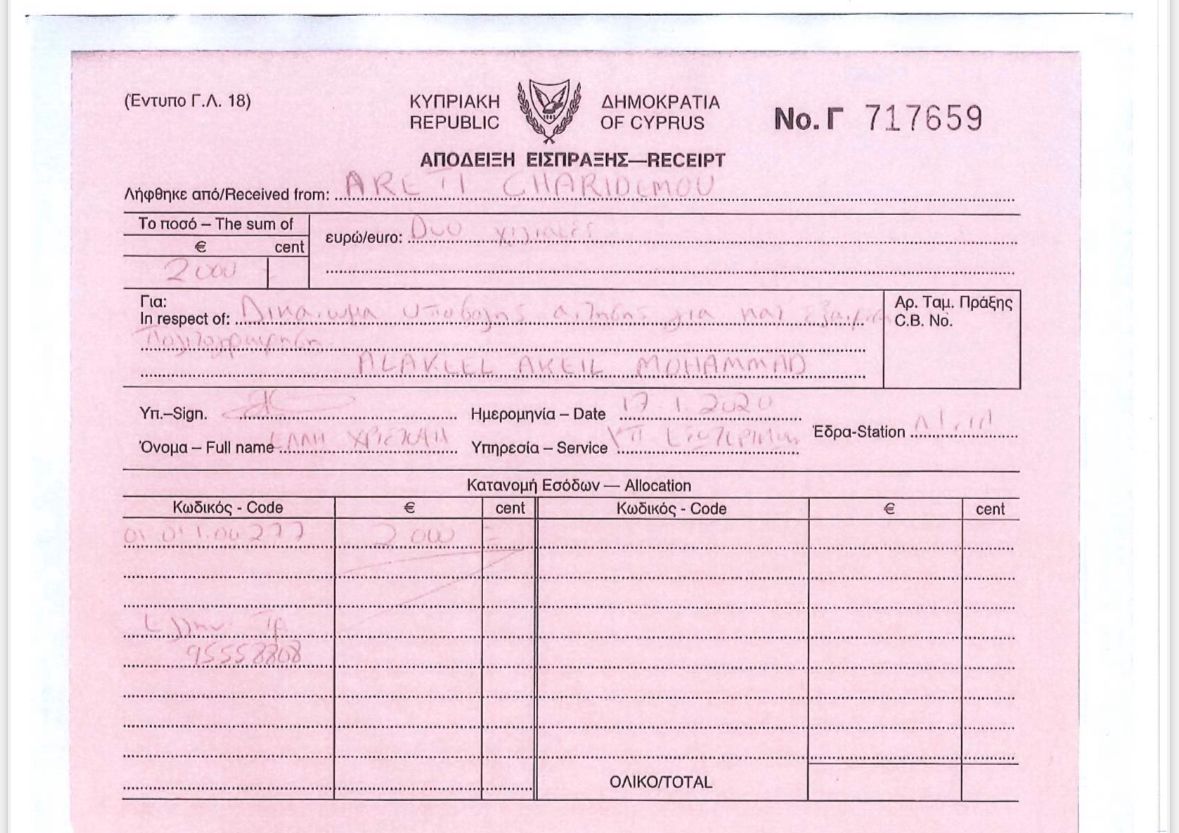 (Έντυπο Γ.Λ. 18)
ΚΥΠΡΙΑΚΗ ΔΗΜΟΚΡΑΤΙΑ
REPUBLIC OF CYPRUS
No. Γ 717659
ΑΠΟΔΕΙΞΗ ΕΙΣΠΡΑΞΗΣ—RECEIPT
Λήφθηκε από/Received from: ARETI CHARIDEMOU
Το ποσό – The sum of
€ cent
2000
ευρώ/euro: Δυο χιλιάδες
Για:
In respect of: Δικαίωμα υποβολής αίτησης για κατ εξαίρεση
Πολιτογράφηση
ALAKEEL AKEIL MOHAMMAD
Αρ. Ταμ. Πράξης
C.B. No.
Υπ.–Sign. Ημερομηνία – Date 17.1.2020
Όνομα – Full name ΕΛΛΗ Υπηρεσία – Service ΥΠ Εσωτερικών
Έδρα-Station
Κατανομή Εσόδων — Allocation
Κωδικός - Code € cent Κωδικός - Code € cent
2000 =
95558808
ΟΛΙΚΟ/TOTAL